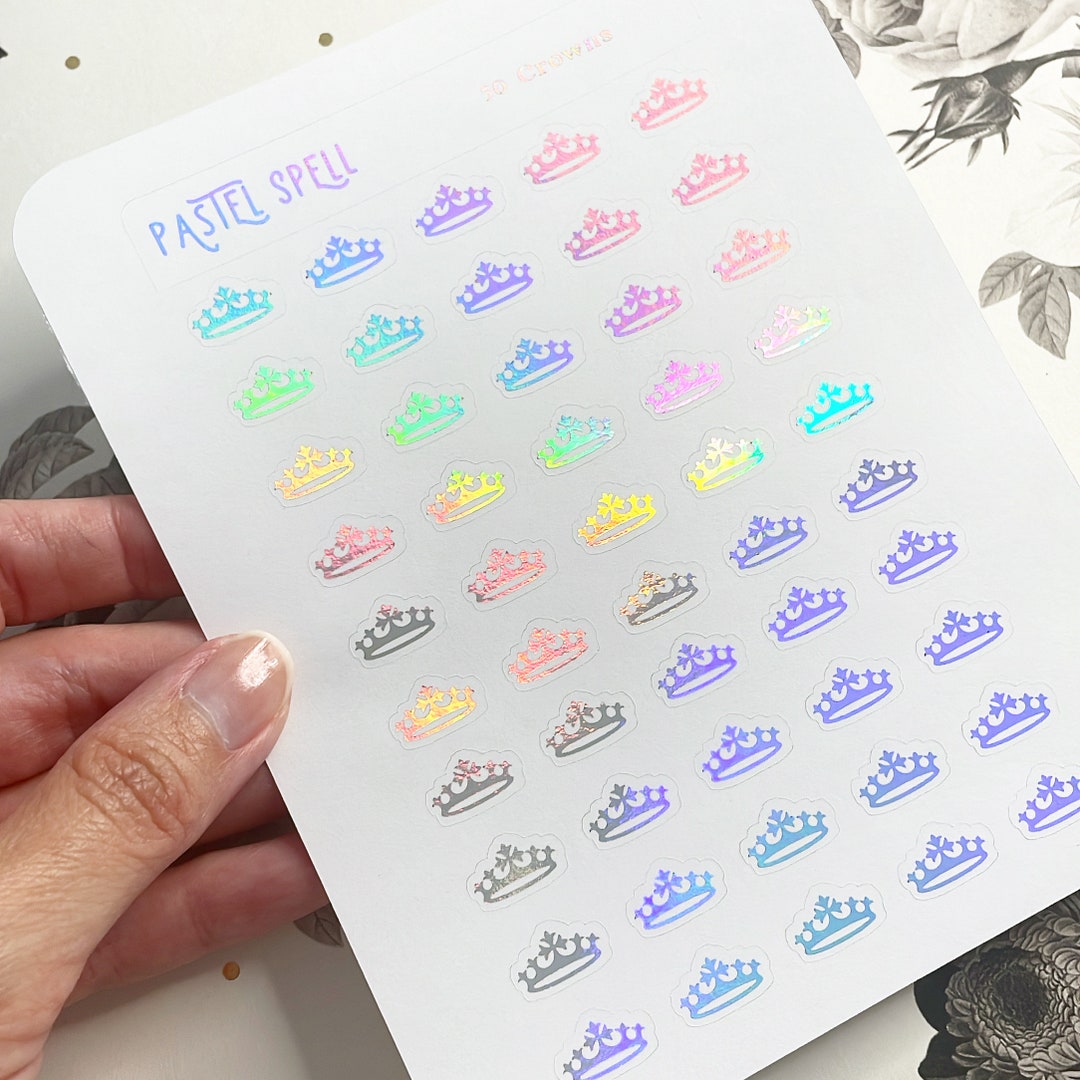 PASTEL SPELL
50 Crowns